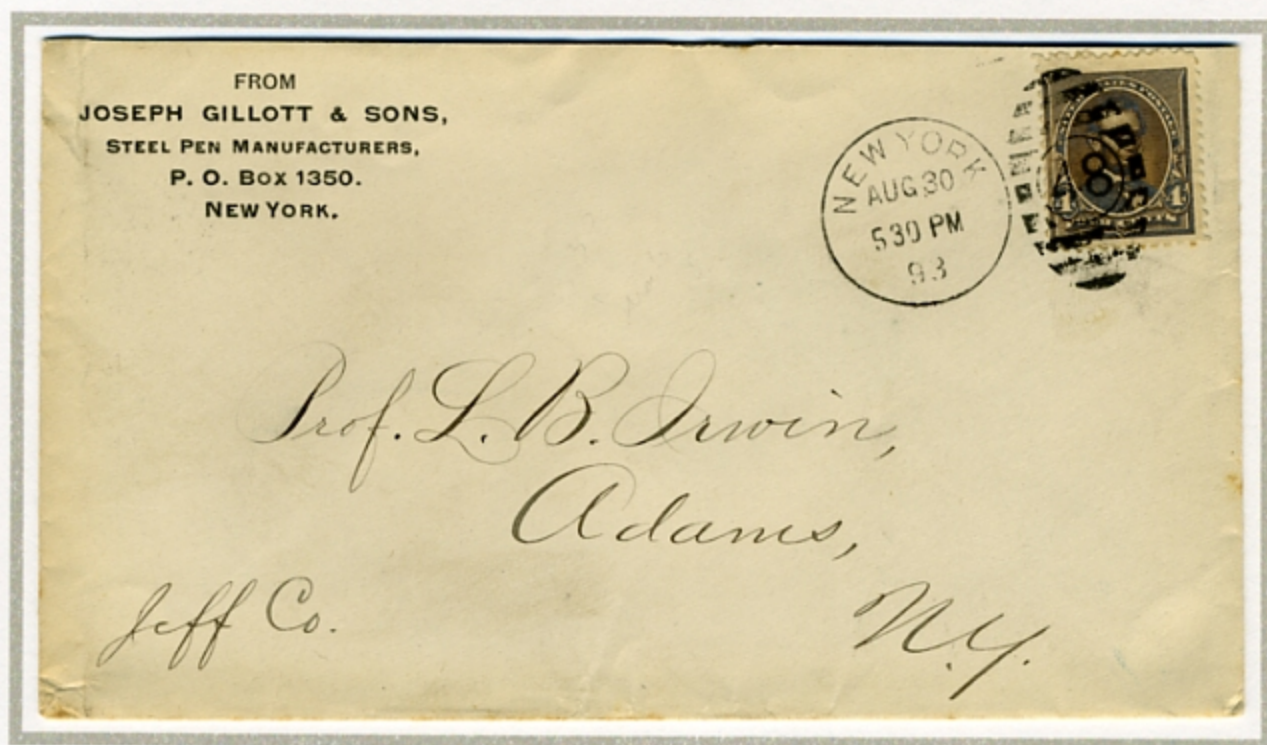 FROM
JOSEPH GILLOTT & SONS,
STEEL PEN MANUFACTURERS,
P. O. BOX 1350.
NEW YORK.
NEW YORK
AUG 30
530 PM
93
8
4 4
Prof. L. B. Irwin,
Adams,
Jeff Co.
N.Y.